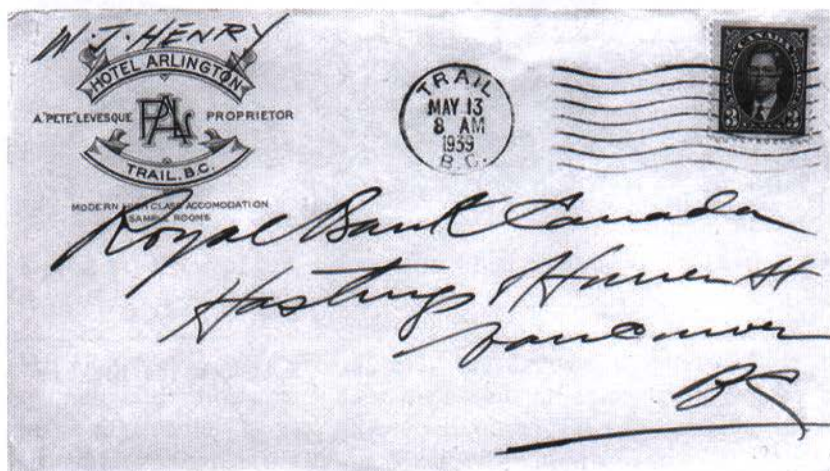 W. J. HENRY
HOTEL ARLINGTON
A. "PETE" LEVESQUE PAL PROPRIETOR
TRAIL, B.C.
MODERN HIGH CLASS ACCOMODATION
SAMPLE ROOMS
TRAIL
MAY 13
8 AM
1939
B.C.
CANADA
3 3
Royal Bank Canada
Hastings Homer St
Vancouver
BC